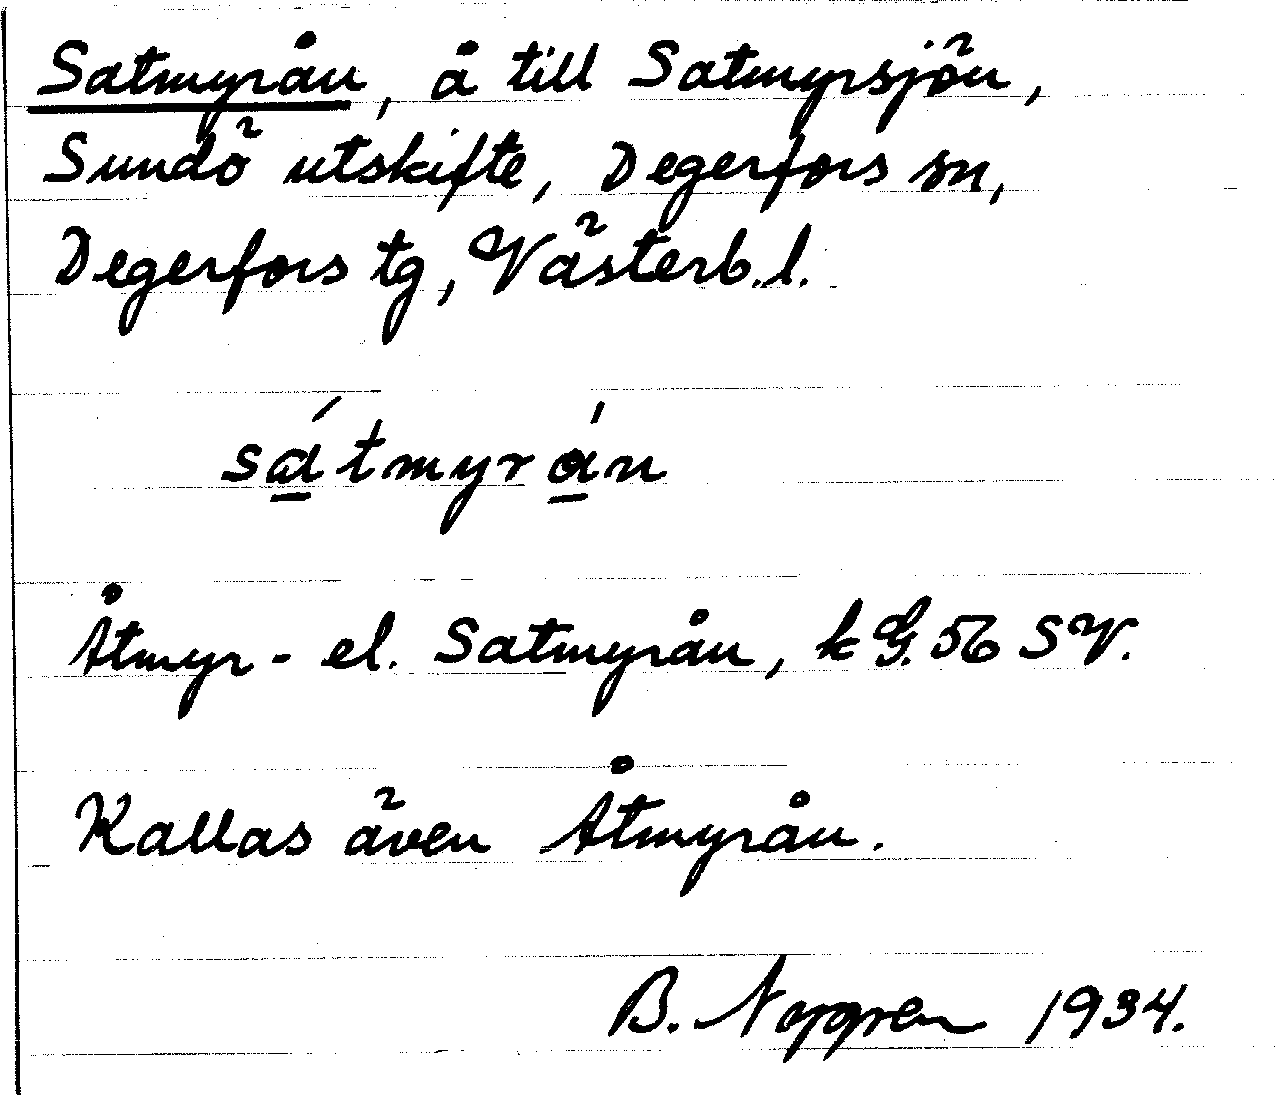 Satmyrån, å till Satmyrsjön,
Sundö utskifte, Degerfors sn,
Degerfors tg, Västerb.l.
sátmyrán
Åtmyr- el. Satmyrån, k G. 56 SV.
Kallas även Åtmyrån.
B. 1934.